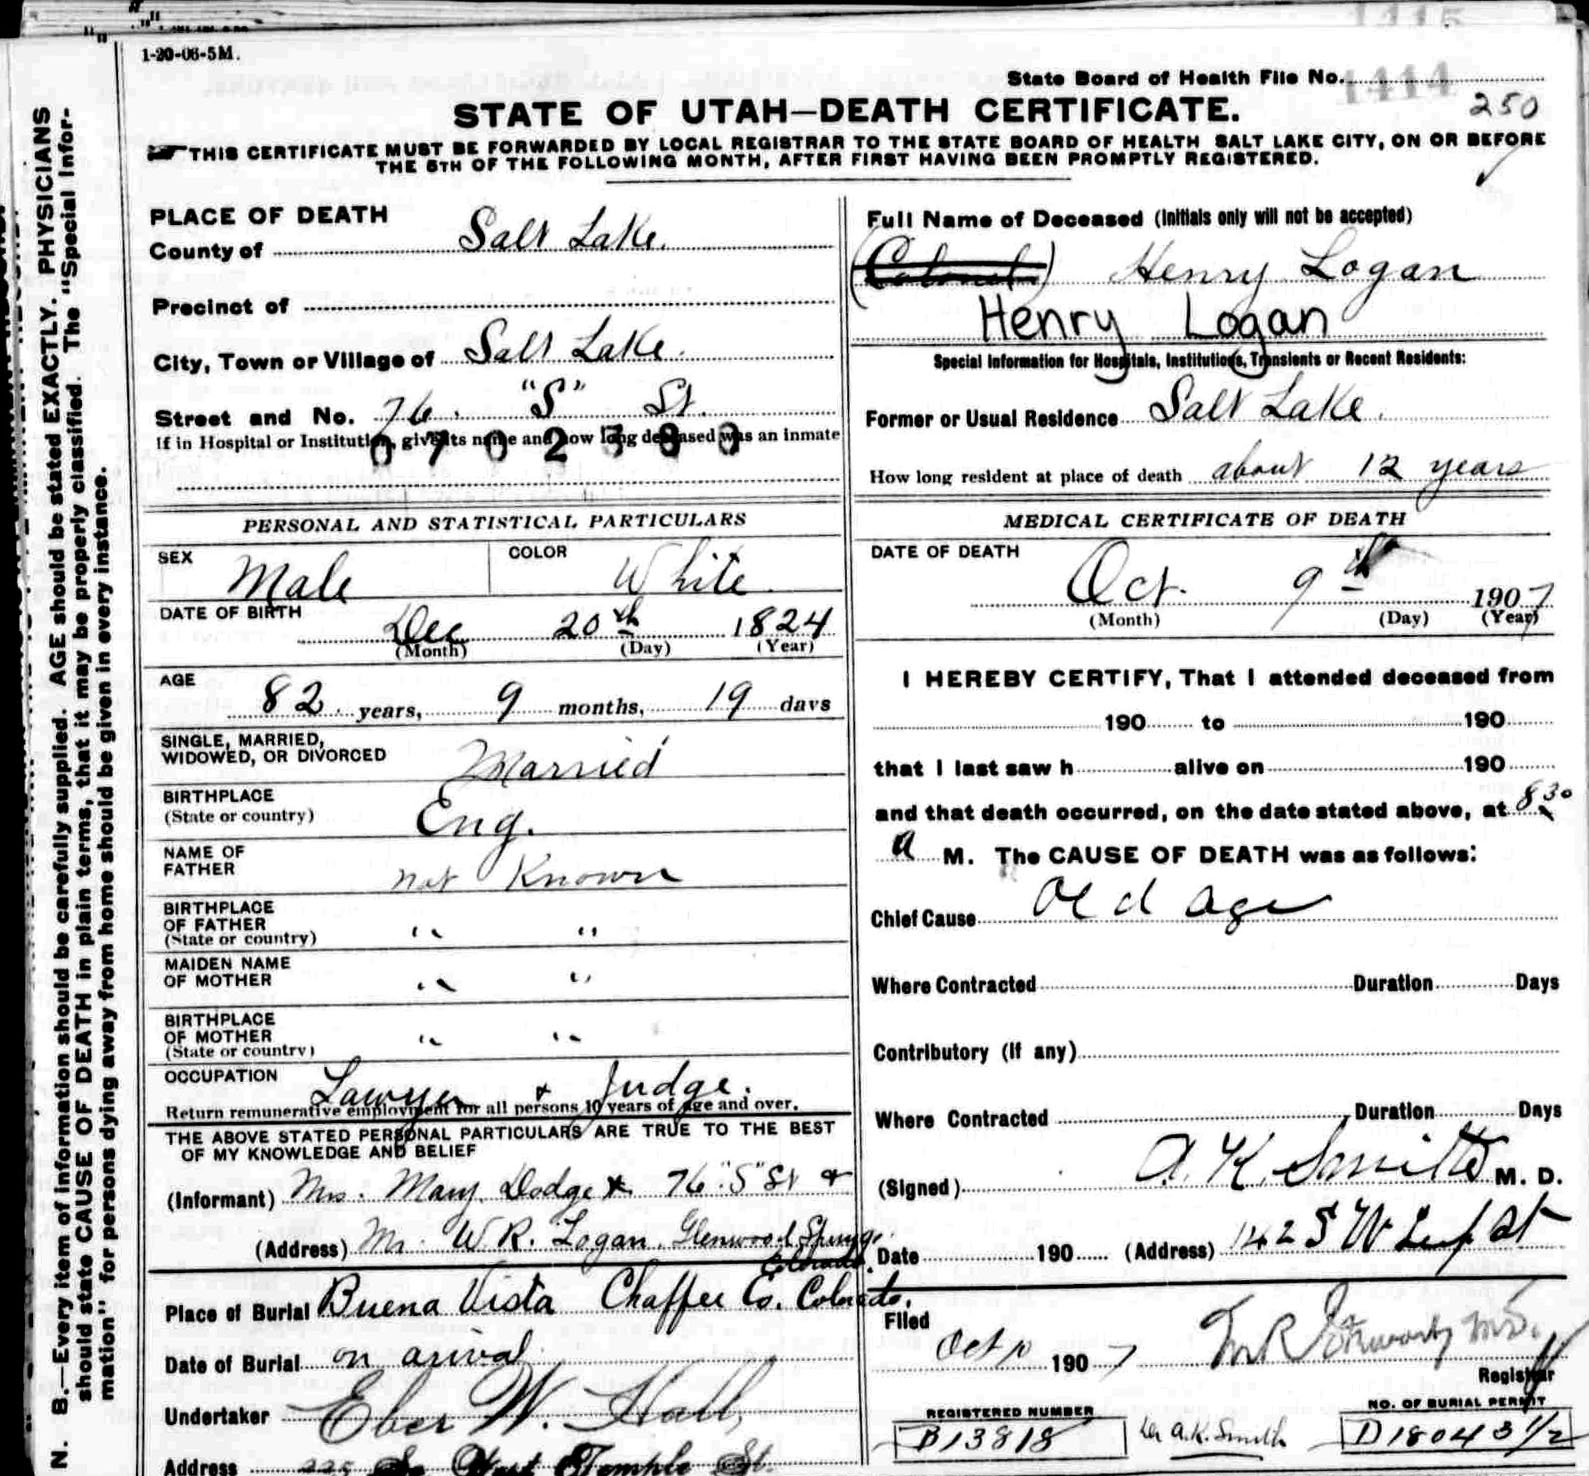 1415
1-20-06-5M.
State Board of Health File No. 1414
STATE OF UTAH—DEATH CERTIFICATE. 250
THIS CERTIFICATE MUST BE FORWARDED BY LOCAL REGISTRAR TO THE STATE BOARD OF HEALTH SALT LAKE CITY, ON OR BEFORE
THE 5TH OF THE FOLLOWING MONTH, AFTER FIRST HAVING BEEN PROMPTLY REGISTERED.
N. B.—Every item of information should be carefully supplied. AGE should be stated EXACTLY. PHYSICIANS
should state CAUSE OF DEATH in plain terms, that it may be properly classified. The "Special Infor-
mation" for persons dying away from home should be given in every instance.
PLACE OF DEATH
County of Salt Lake.
Precinct of
City, Town or Village of Salt Lake.
Street and No. 76. "S" St.
If in Hospital or Institution, give its name and how long deceased was an inmate
0702580
PERSONAL AND STATISTICAL PARTICULARS
SEX Male COLOR White
DATE OF BIRTH
Dec 20th 1824
(Month) (Day) (Year)
AGE
82 years, 9 months, 19 days
SINGLE, MARRIED,
WIDOWED, OR DIVORCED Married
BIRTHPLACE
(State or country) Eng.
NAME OF
FATHER not Known
BIRTHPLACE
OF FATHER
(State or country) " "
MAIDEN NAME
OF MOTHER " "
BIRTHPLACE
OF MOTHER
(State or country) " "
OCCUPATION Lawyer & Judge.
Return remunerative employment for all persons 10 years of age and over.
THE ABOVE STATED PERSONAL PARTICULARS ARE TRUE TO THE BEST
OF MY KNOWLEDGE AND BELIEF
(Informant) Mrs. Mary Dodge 76 "S" St &
(Address) Mr. W R. Logan. Glenwood Springs
Colorado.
Place of Burial Buena Vista Chaffee Co. Colorado.
Date of Burial on arival
Undertaker Eber W. Hall,
Address 225 So West Temple St.
Full Name of Deceased (Initials only will not be accepted)
(Colonel) Henry Logan
Henry Logan
Special Information for Hospitals, Institutions, Transients or Recent Residents:
Former or Usual Residence Salt Lake.
How long resident at place of death about 12 years
MEDICAL CERTIFICATE OF DEATH
DATE OF DEATH
Oct. 9th 1907
(Month) (Day) (Year)
I HEREBY CERTIFY, That I attended deceased from
190 to 190
that I last saw h alive on 190
and that death occurred, on the date stated above, at 8 30
a M. The CAUSE OF DEATH was as follows:
Chief Cause Old age
Where Contracted Duration Days
Contributory (if any)
Where Contracted Duration Days
(Signed) A. K. Smith M. D.
Date 190 (Address) 142 S W Temp St
Filed
Oct 10 1907
Registrar
REGISTERED NUMBER
B13818
A.K. Smith
NO. OF BURIAL PERMIT
D18043 1/2